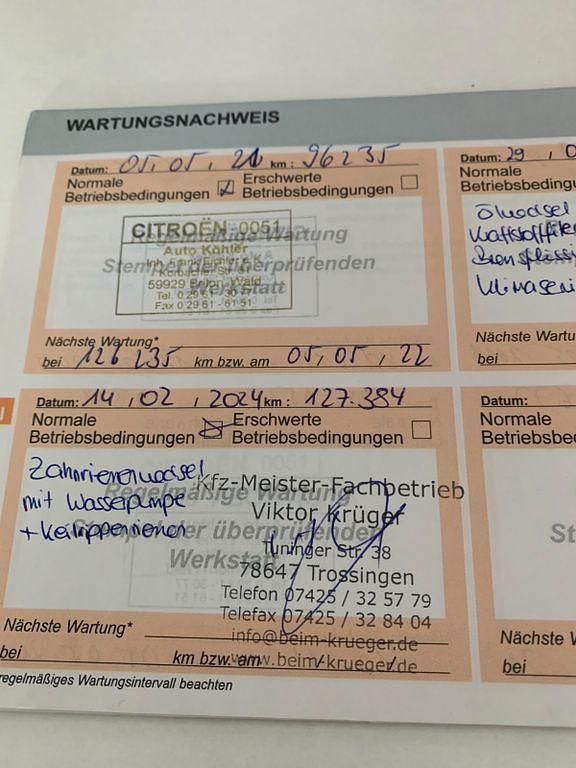 WARTUNGSNACHWEIS
Datum: 05, 05, 21 km: 96235
Normale
Betriebsbedingungen
Erschwerte
Betriebsbedingungen
CITROËN 0051
Regelmäßige Wartung
Auto Köhler
Stempel der überprüfenden
Werkstatt
59929 Brilon-Wald
Tel. 0 29 61
Fax 0 29 61 - 61 51
Nächste Wartung*
bei 126 235 km bzw. am 05, 05, 22
Datum: 14, 02, 2024 km: 127.384
Normale
Betriebsbedingungen
Erschwerte
Betriebsbedingungen
Zahnriemenwechsel
mit Wasserpumpe
+ Keilrippenriemen
Regelmäßige Wartung
Stempel der überprüfenden
Werkstatt
Kfz-Meister-Fachbetrieb
Viktor Krüger
Tuninger Str. 38
78647 Trossingen
Telefon 07425 / 32 57 79
Telefax 07425 / 32 84 04
info@beim-krueger.de
www.beim-krueger.de
Nächste Wartung*
bei km bzw. am
regelmäßiges Wartungsintervall beachten
Datum: 29, 0
Normale
Betriebsbedingu
Ölwechsel
Nächste Wartung
bei
Datum:
Normale
Betriebsbedingu
St
Nächste W
bei